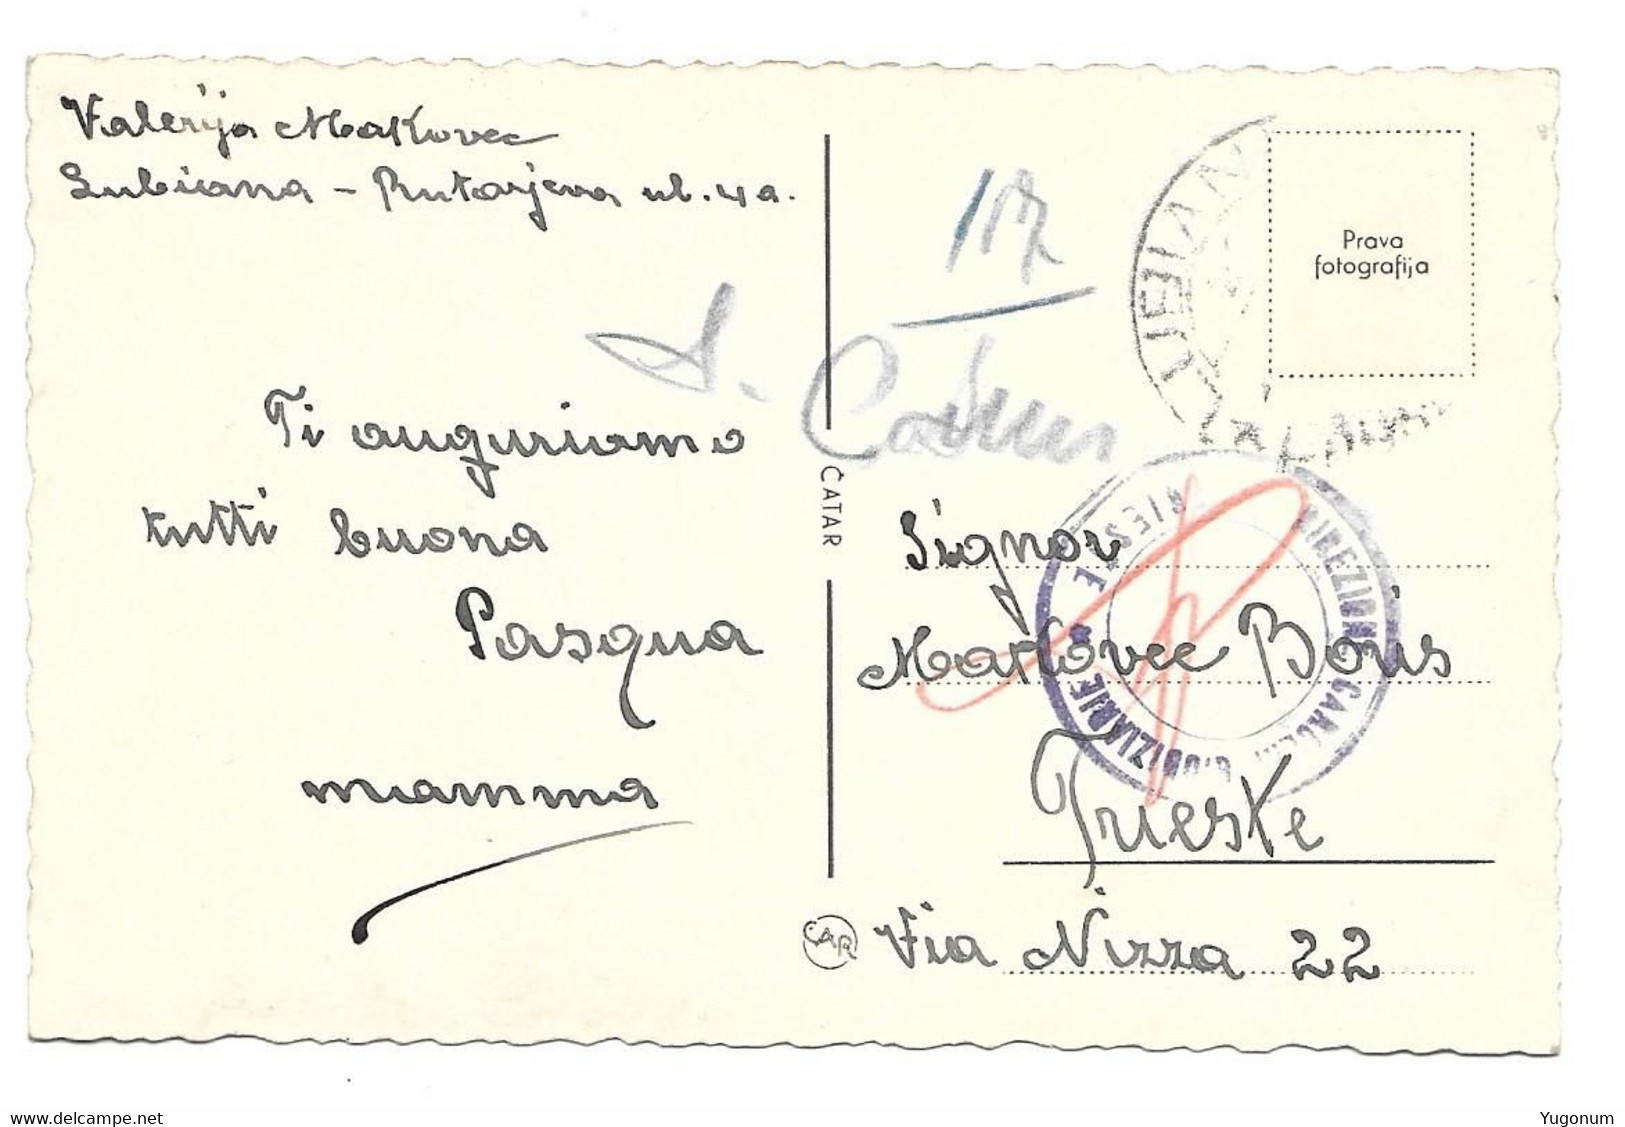 Valerija Makovec
Lubiana - Rutarjeva ul. 4a.
Ti auguriamo
tutti buona
Pasqua
mamma
ČATAR
ČAR
117
LJUBLJANA
Prava
fotografija
DIREZIONE CARCERI GIUDIZIARIE
TRIESTE
Signor
Makovec Boris
Trieste
Via Nizza 22
www.delcampe.net
Yugonum